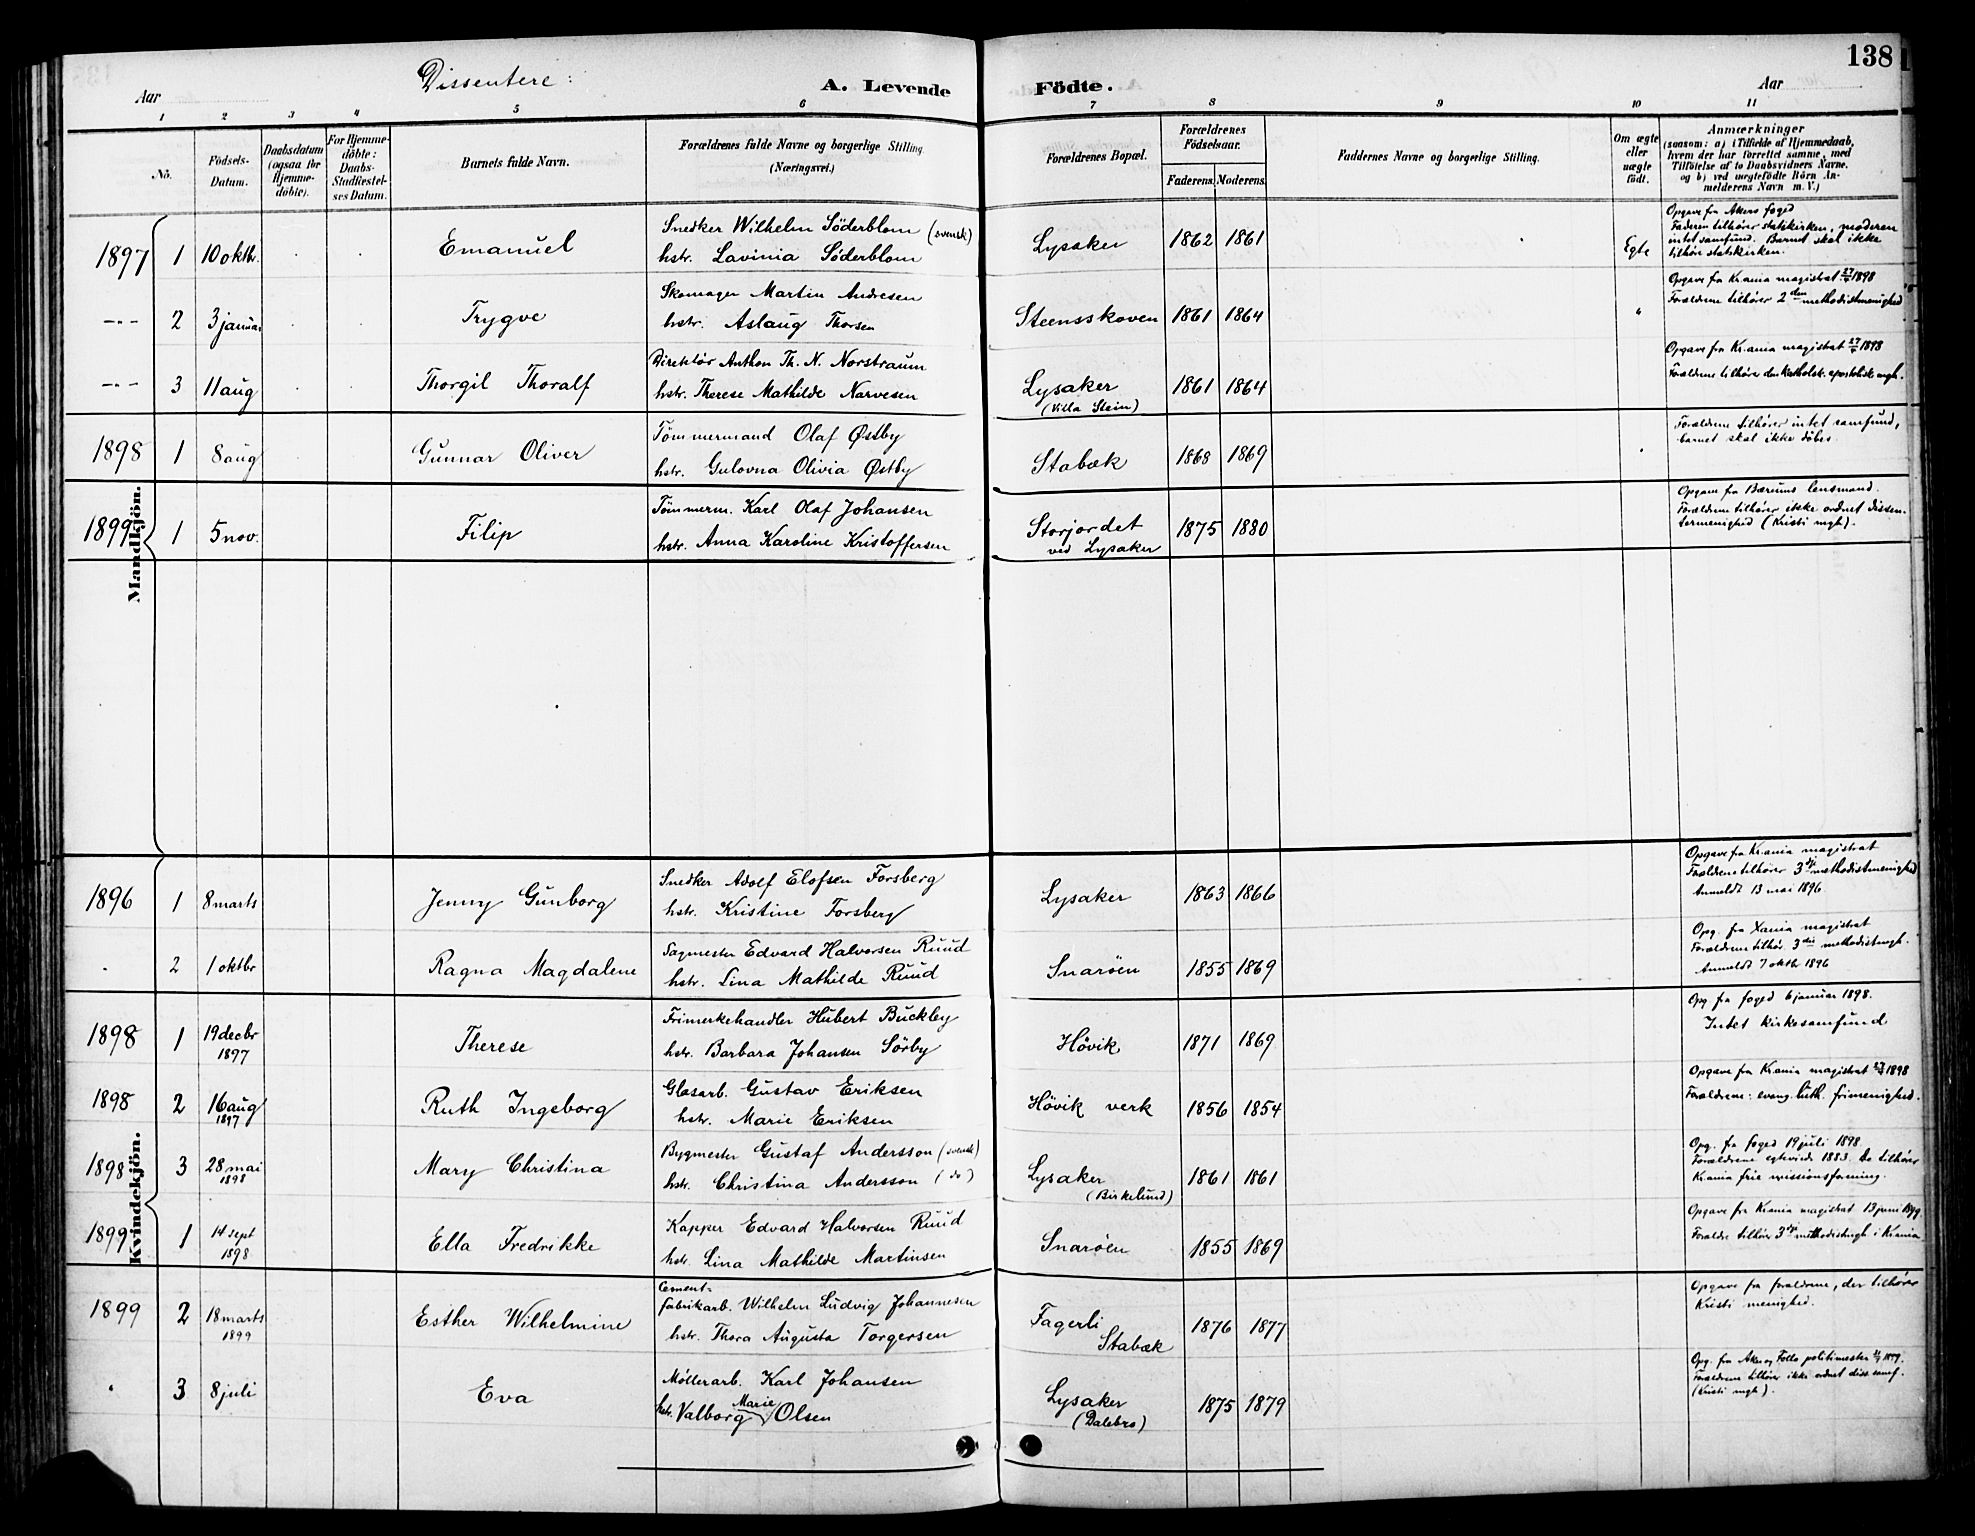 138
Dissentere:
A. Levende Födte.
Aar
Aar
1 2 3 4 5 6 7 8 9 10 11
No.
Födsels-Datum.
Daabsdatum (ogsaa for Hjemme-döbte).
For Hjemme-döbte: Daabs-Stadfæstel-ses Datum.
Barnets fulde Navn.
Forældrenes fulde Navne og borgerlige Stilling (Næringsvei.)
Forældrenes Bopæl.
Forældrenes Födselsaar.
Faderens. Moderens.
Faddernes Navne og borgerlige Stilling.
Om ægte eller uægte födt.
Anmærkninger
(saasom: a) i Tilfælde af Hjemmedaab, hvem der har forrettet samme, med Tilföielse af to Daabsvidners Navne, og b) ved uægtefödte Börn An-melderens Navn m. V.)
Mandkjön.
1897 1 10 oktbr. Emanuel
Snedker Wilhelm Söderblom (svensk)
hstr. Lavinia Söderblom
Lysaker 1862 1861 Egte
Opgave fra Akers foged
Faderen tilhører statskirken, moderen
intet samfund. Barnet skal ikke
tilhøre statskirken.
-"- 2 3 januar Trygve
Skomager Martin Andresen
hstr. Aslaug Thorsen
Steensskoven 1861 1864 "
Opgave fra Kr.ania magistrat 1898
Forældrene tilhører 2den methodistmenighed
-"- 3 11 aug Thorgil Thoralf
Direktør Anthon Th. N. Norstraum
hstr. Therese Mathilde Narvesen
Lysaker 1861 1864
(Villa Stein)
Opgave fra Kr.ania magistrat 1898
Forældrene tilhører den katholsk. apostoliske mgh.
1898 1 8 aug Gunnar Oliver
Tömmermand Olaf Østby
hstr. Gulovna Olivia Østby
Stabæk 1868 1869
Forældrene tilhører intet samfund,
barnet skal ikke døbes.
1899 1 5 nov. Filip
Tömmerm. Karl Olaf Johansen
hstr. Anna Karoline Kristoffersen
Storjordet 1875 1880
ved Lysaker
Opgave fra Bærums lensmand.
Forældrene tilhører ikke ordnet dissen-
termenighed (Kristi mgh).
Kvindekjön.
1896 1 8 marts Jenny Gunborg
Snedker Adolf Elofsen Forsberg
hstr. Kristine Forsberg
Lysaker 1863 1866
Opgave fra Kr.ania magistrat
Forældrene tilhører 3die methodistmenighed
Anmeldt 13 mai 1896
. 2 1 oktbr Ragna Magdalene
Sagmester Edvard Halvorsen Ruud
hstr. Lina Mathilde Ruud
Snaröen 1855 1869
Opg. fra Xania magistrat
Forældrene tilhør. 3die methodistmgh.
Anmeldt 7 oktbr 1896
1898 1 19 decbr 1897 Therese
Frimerkehandler Hubert Buckley
hstr. Barbara Johansen Sörby
Hövik 1871 1869
Opg. fra foged 6 januar 1898.
Intet kirkesamfund
1898 2 16 aug 1897 Ruth Ingeborg
Glasarb. Gustav Eriksen
hstr. Marie Eriksen
Hövik verk 1856 1854
Opgave fra Kr.ania magistrat 1898
Forældrene: evang. luth. frimenighed.
1898 3 28 mai 1898 Mary Christina
Bygmester Gustaf Andersson (svensk)
hstr. Christina Andersson (do)
Lysaker 1861 1861
(Birkelund)
Opg. fra foged 19 juli 1898
Forældrene egteviede 1883. De tilhører
Kr.ania frie missionsforening.
1899 1 14 sept 1898 Ella Fredrikke
Kapper Edvard Halvorsen Ruud
hstr. Lina Mathilde Martinsen
Snaröen 1855 1869
Opgave fra Kr.ania magistrat 13 juni 1899.
Forældre tilhör 3die methodistmgh i Kr.ania
1899 2 18 marts 1899 Esther Wilhelmine
Cement-
fabrikarb. Wilhelm Ludvig Johannesen
hstr. Thora Augusta Torgersen
Fagerli 1876 1877
Stabæk
Opgave fra forældrene, der tilhører
Kristi menighed.
" 3 8 juli Eva
Møllerarb. Karl Johansen
hstr. Valborg Marie Olsen
Lysaker 1875 1879
(Dalebro)
Opg. fra Aker og Follo politimester 1899.
Forældrene tilhører ikke ordnet diss. samf.
(Kristi mgh).